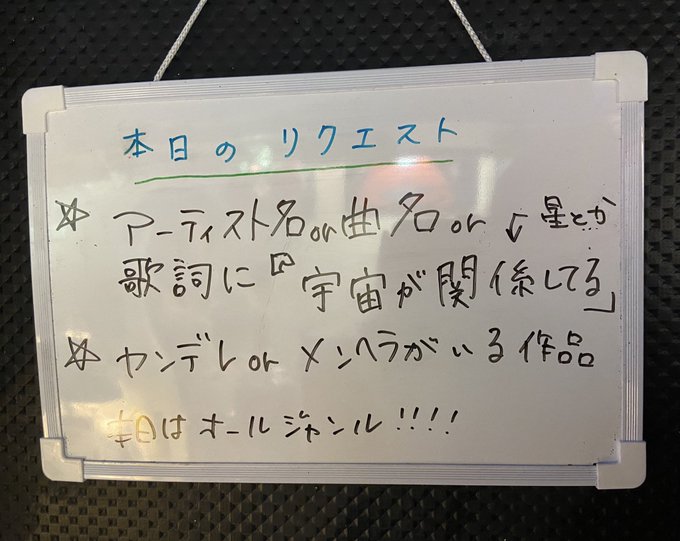 本日のリクエスト
☆ アーティスト名or曲名or ↓星とか
歌詞に『宇宙が関係してる」
☆ ヤンデレor メンヘラがいる作品
本日はオールジャンル!!!!